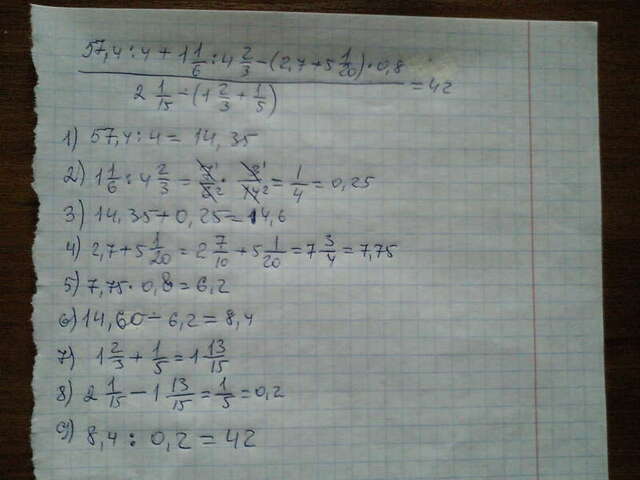 57,4 : 4 + 1 1/6 : 4 2/3 - (2,7 + 5 1/20) · 0,8
2 1/15 - (1 2/3 + 1/5)
= 42
1) 57,4 : 4 = 14,35
2) 1 1/6 : 4 2/3 = 7/6 · 3/14 = 1/4 = 0,25
3) 14,35 + 0,25 = 14,6
4) 2,7 + 5 1/20 = 2 7/10 + 5 1/20 = 7 3/4 = 7,75
5) 7,75 · 0,8 = 6,2
6) 14,60 - 6,2 = 8,4
7) 1 2/3 + 1/5 = 1 13/15
8) 2 1/15 - 1 13/15 = 1/5 = 0,2
9) 8,4 : 0,2 = 42